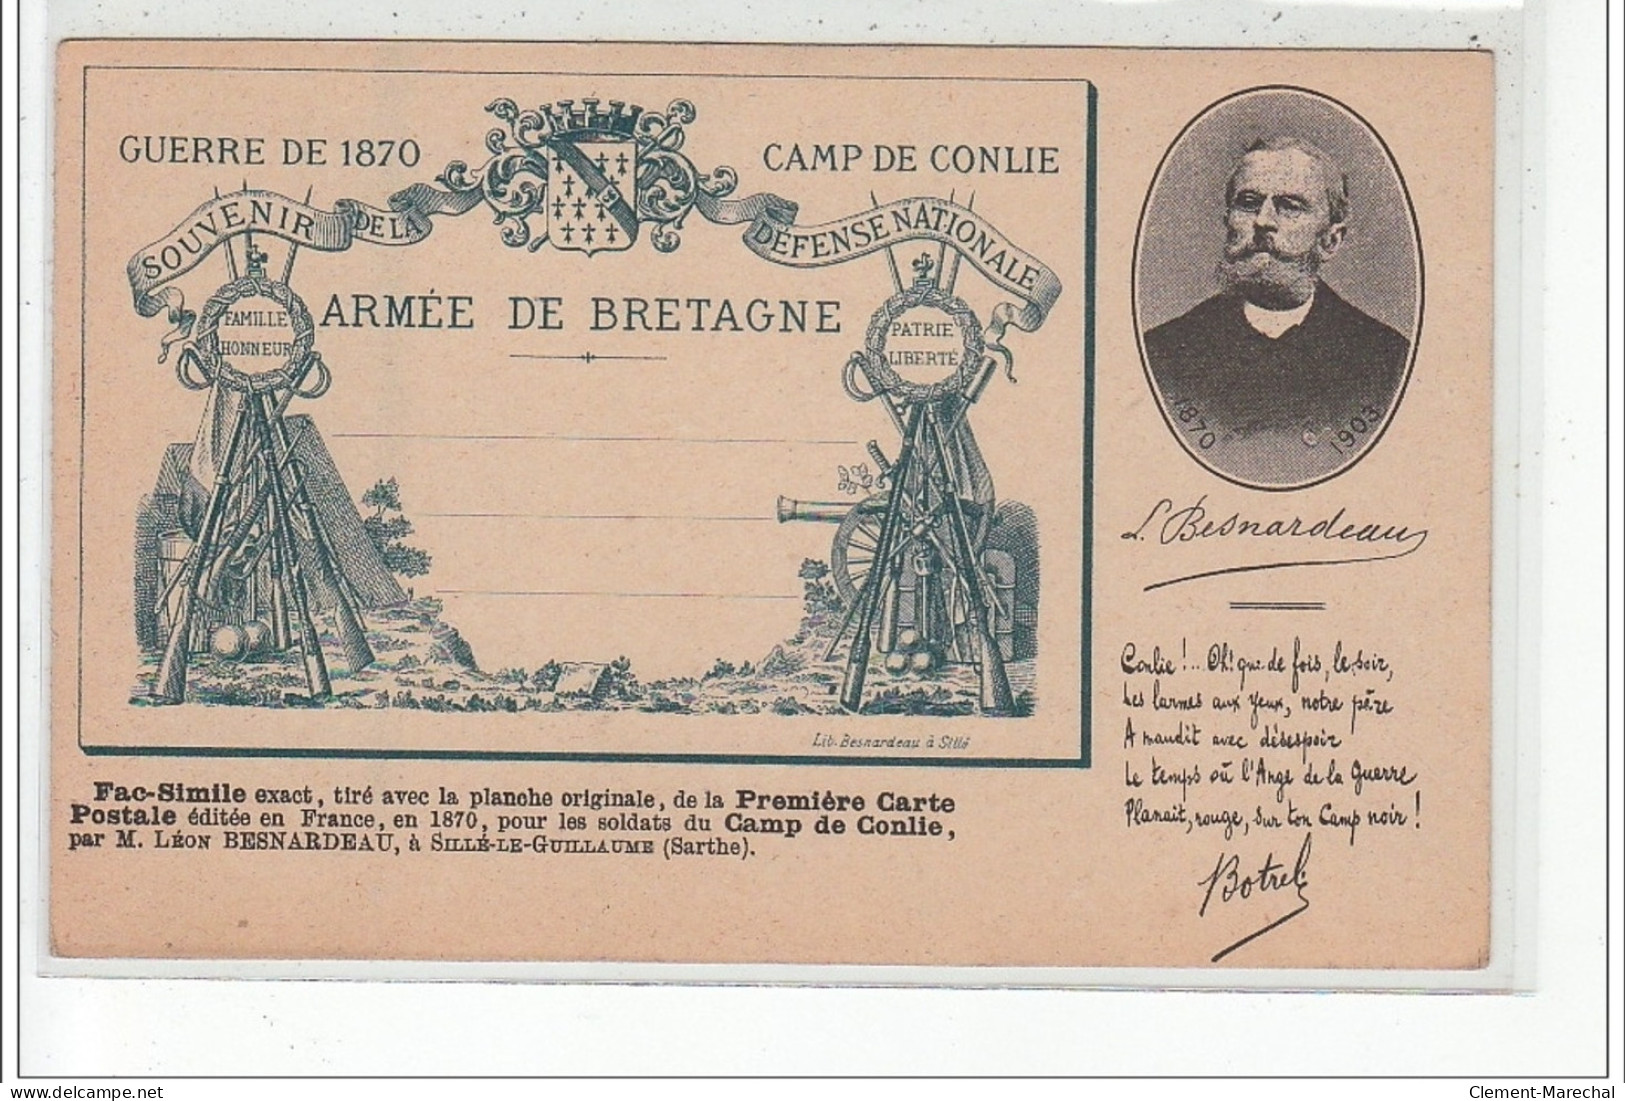 GUERRE DE 1870
CAMP DE CONLIE
SOUVENIR DE LA DÉFENSE NATIONALE
ARMÉE DE BRETAGNE
FAMILLE
HONNEUR
PATRIE
LIBERTÉ
Lib. Besnardeau à Sillé
Fac-Simile exact, tiré avec la planche originale, de la Première Carte
Postale éditée en France, en 1870, pour les soldats du Camp de Conlie,
par M. LÉON BESNARDEAU, à SILLÉ-LE-GUILLAUME (Sarthe).
1870 1903
L. Besnardeau
Conlie !.. Oh! que de fois, le soir,
Les larmes aux yeux, notre père
A maudit avec désespoir
Le temps où l'Ange de la Guerre
Planait, rouge, sur ton Camp noir !
Botrel
Clement-Marechal